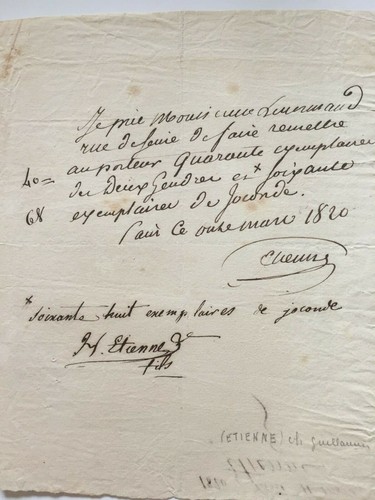 Je prie Monsieur
rue de Seine de faire remettre
40= au porteur Quarante exemplaires
des Deux Gendres et x soixante
68 exemplaires de Joconde.
Paris Ce onze mars 1820
Etienne
x soixante huit exemplaires de joconde
H. Etienne
fils
(ETIENNE) Ch Guillaume